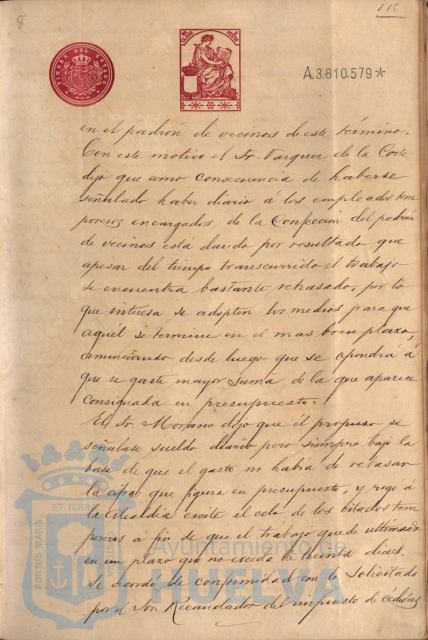 8
115
TIMBRE DEL ESTADO
A.3.810.579*
en el padrón de vecinos de este término.
Con este motivo el Sr. Vazquez de la Corte
dijo que como consecuencia de haberse
señalado haber diario á los empleados tem
poreros encargados de la Confección del padron
de vecinos está dando por resultado que
apesar del tiempo transcurrido el trabajo
se encuentra bastante retrasado, por lo
que interesa se adopten los medios para que
aquél se termine en el mas breve plazo,
denunciando desde luego que se opondrá á
que se gaste mayor suma de la que aparece
consignada en presupuesto.
El Sr. Morano dijo que él propuso se
señalase sueldo diario pero siempre bajo la
base de que el gasto no habia de rebasar
la cifra que figura en presupuesto, y rogó á
la Alcaldia excite el celo de los citados tem
poreros a fin de que el trabajo quede ultimado
en un plazo que no exceda de treinta dias.
Se acordó de conformidad con lo solicitado
por el Recaudador del impuesto de cédulas
PORTUS MARIS
ET TERR
Ayuntamiento de
HUELVA